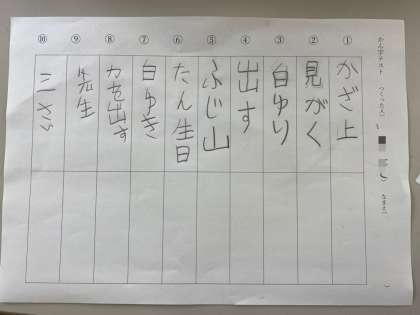 かん字テスト つくった人( ) なまえ( )
① かざ上
② 見がく
③ 白ゆり
④ 出す
⑤ ふじ山
⑥ たん生日
⑦ 白ゆき
⑧ 力を出す
⑨ 先生
⑩